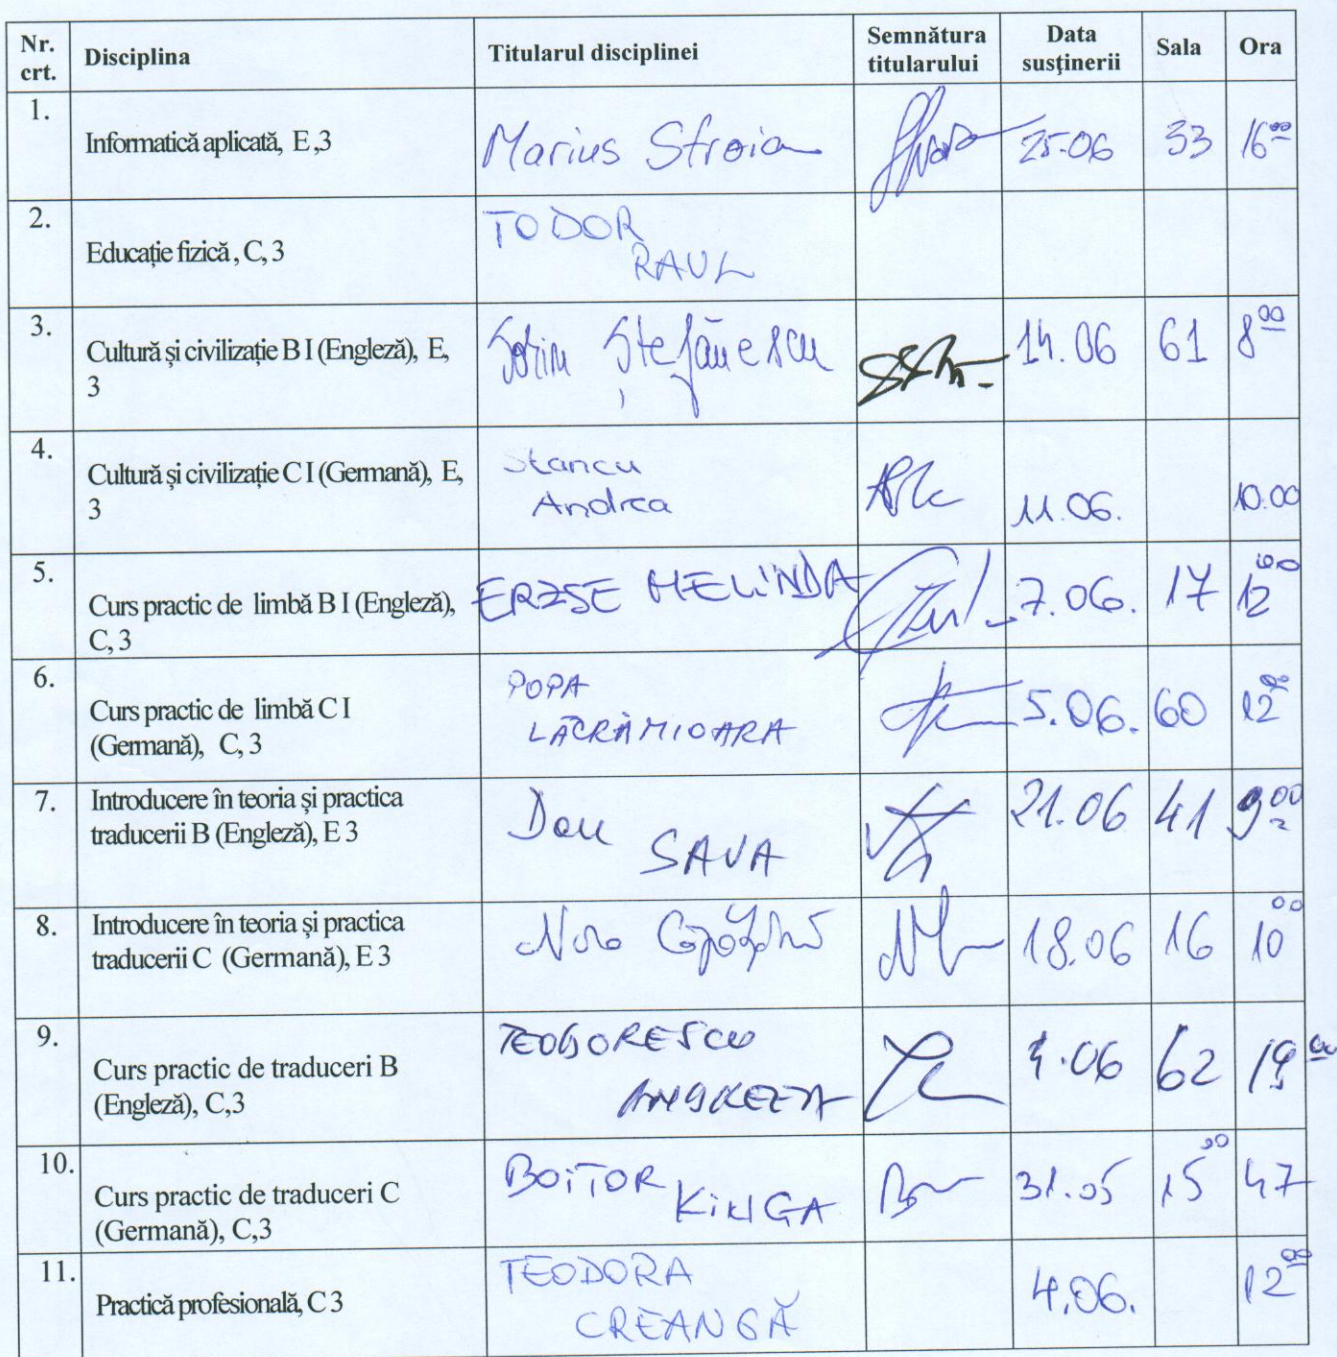 Nr. crt. Disciplina Titularul disciplinei Semnătura titularului Data susținerii Sala Ora
1. Informatică aplicată, E ,3 Marius Stroia 25.06 33 16⁰⁰
2. Educație fizică , C, 3 TODOR RAUL
3. Cultură și civilizație B I (Engleză), E, 3 Sorin Ștefănescu 14.06 61 8⁰⁰
4. Cultură și civilizație C I (Germană), E, 3 Stancu Andrea 11.06. 10.00
5. Curs practic de limbă B I (Engleză), C, 3 ERZSE MELINDA 7.06. 17 12⁰⁰
6. Curs practic de limbă C I (Germană), C, 3 POPA LĂCRĂMIOARA 5.06. 60 12⁰⁰
7. Introducere în teoria și practica traducerii B (Engleză), E 3 Dan SAVA 21.06 41 9⁰⁰
8. Introducere în teoria și practica traducerii C (Germană), E 3 18.06 16 10⁰⁰
9. Curs practic de traduceri B (Engleză), C,3 TEODORESCU 62
10. Curs practic de traduceri C (Germană), C,3 BOITOR KINGA 31.05 15⁰⁰ 47
11. Practică profesională, C 3 TEODORA CREANGĂ 4.06. 12⁰⁰